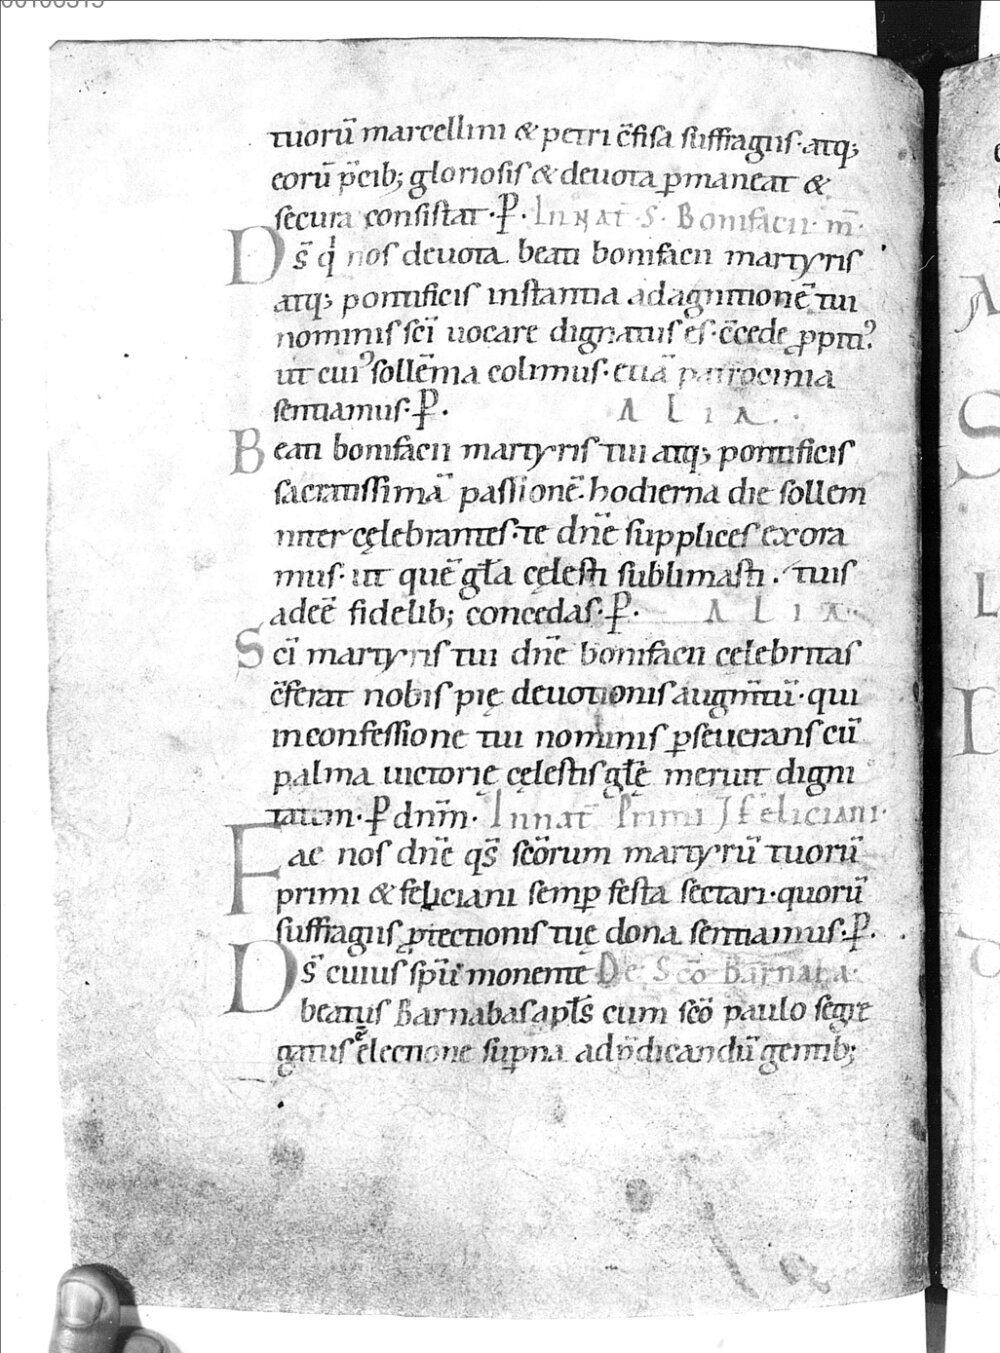 tuorū marcellini & petri c̄fisa suffragiis· atq;
eorū p̄cib; gloriosis & deuota ꝑmaneat &
secura consistat· P̱· In nat̄ S̄ Bonifacii m̄·
Ds̄ qi nos deuota beati bonifacii martyris
atq; pontificis instantia ad agnitionē tui
nominis sc̄i uocare dignatus es· c̄cede ꝓpiti᾽
ut cui᾽ sollēnia colimus· etiā patrocinia
sentiamus· P̱· ALIA.
Beati bonifacii martyris tui atq; pontificis
sacratissimā passionē· hodierna die sollem
niter cęlebrantes· te dn̄e supplices exora
mus· ut quē gl̄a cęlesti sublimasti· tuis
adeē fidelib; concedas· P̱· ALIA·
Sc̄i martyris tui dn̄e bonifacii cęlebritas
c̄ferat nobis pię deuotionis augm̄tū· qui
in confessione tui nominis ꝑseuerans cū
palma uictorię cęlestis gl̄ę meruit digni
tatem· P̱ dnm̄· In nat̄ Primi & feliciani·
Fac nos dn̄e qs̄ sc̄orum martyrū tuorū
primi & feliciani semꝑ festa sectari· quorū
suffragiis ꝓtectionis tuę dona sentiamus· P̱·
Ds̄ cuius sp̄u monente De Sc̄o Barnaba·
beatus Barnabas apl̄s cum sc̄o paulo segre
gatus ē electione suꝑna ad p̄dicandū gentib;